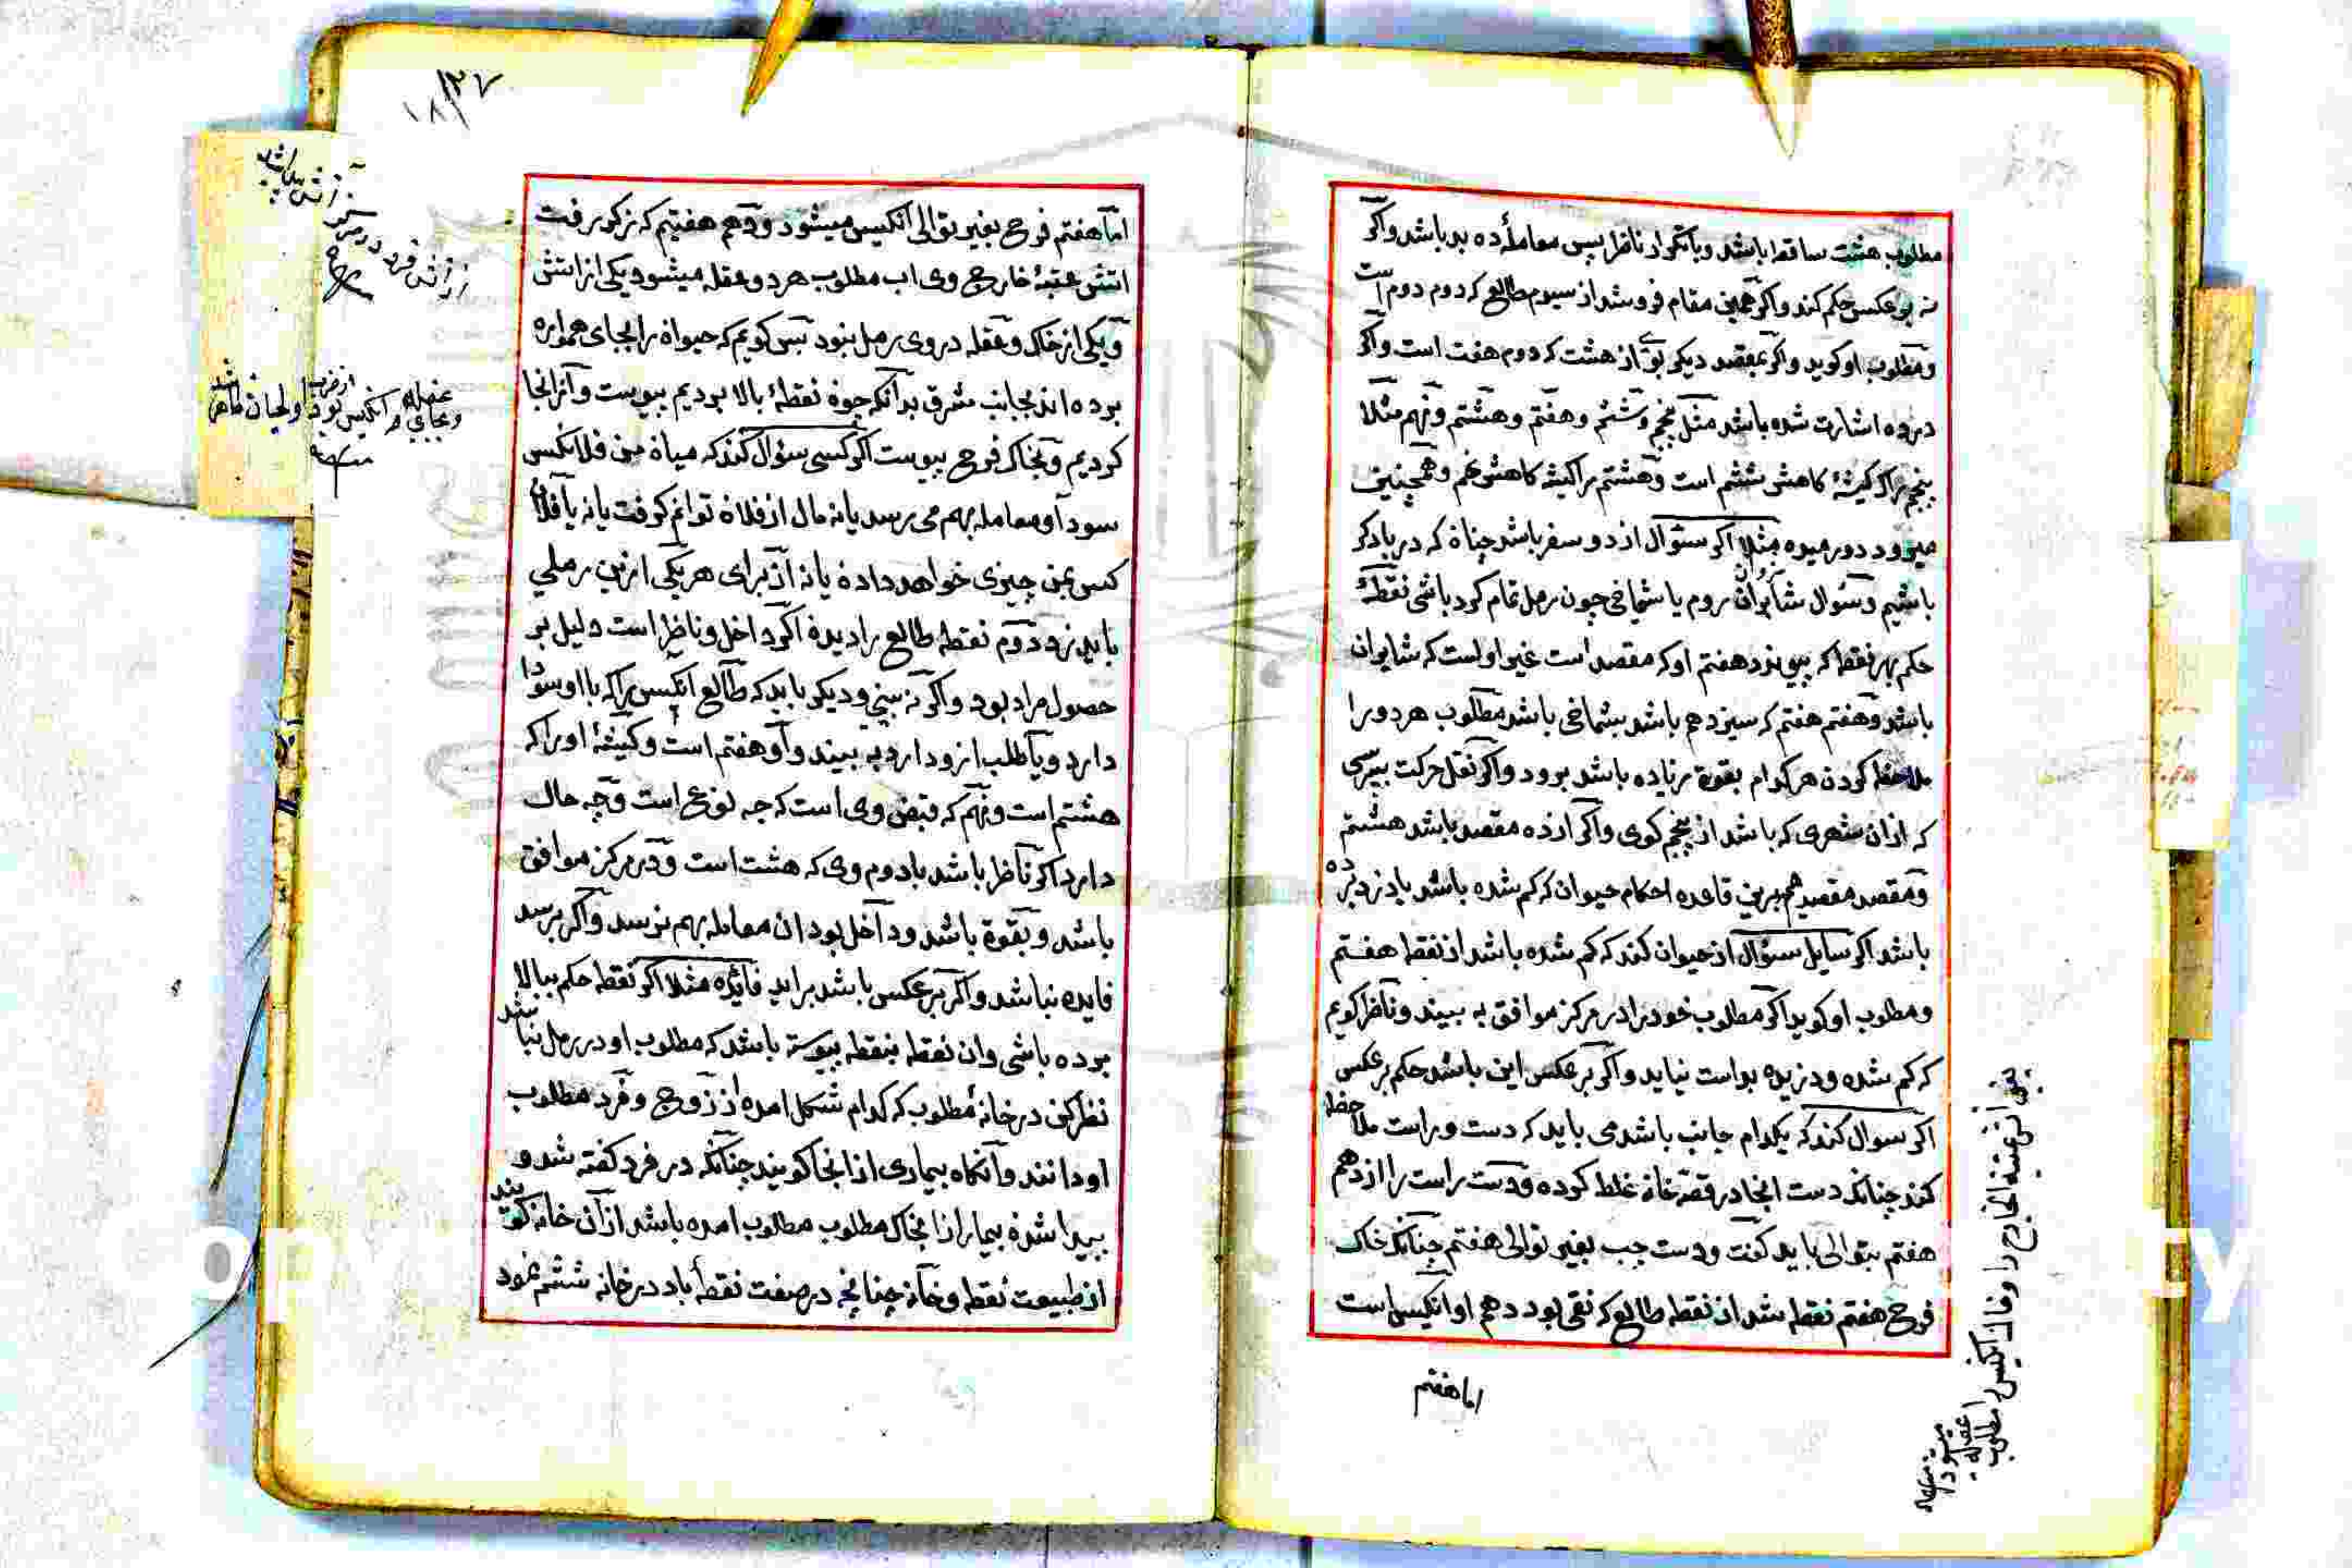 مطلوب هشت ساقط باشد و یا تکرار ناظر پس معاملهٔ ده بد باشد و اگر
نه بر عکس حکم کند و اگر همین مقام فروشد از سیوم طالع که دوم دوم است
و مطلوب او کوید و اکر بمقصد دیکر بوی از هشت که دوم هفت است و اکر
در ده اشارت شده باشد مثل پنجم و ششم و هفتم و هشتم و نهم مثلا
پنجم را که کیشهٔ کاهش ششم است و هشتم را کیشه کاهش نهم و همچنین
میرود دور میوه مثلا اکر سئوال از دو سفر باشد چنان که در یاد کر
باشیم و سئوال شایروان روم یا شماخی چون رمل تمام کرد باشی نقطهٔ
حکم بهر نقطه که پیوندد هفتم او که مقصد است غیر اول است که شایروان
باشد و هفتم هفتم که سیزدهم باشد بشماخی باشد مطلوب هر دو را
ملاحظه کردن هر کدام بقوة زیاده باشد برود و اکر نقل حرکت بپرسی
که ازان شهری که باشد از پنجم کوی و اکر از ده مقصد باشد هشتم
و مقصد مقصد هم برین قاعده احکام حیوان که کم شده باشد یا دزد برده
باشد اکر سایل سئوال از حیوان کند که کم شده باشد از نقطه هفتم
و مطلوب او کوید اکر مطلوب خود را در مرکز موافق به بیند و ناظر کویم
که کم شده و دزیده بداست نیاید و اکر بر عکس این باشد حکم بر عکس
اکر سوال کند که بکدام جانب باشد می باید که دست و راست ملاحظه
کند چنانکه دست انجا در قصه خانه غلط کرده و دست راست را از دهم
هفتم بتوالی باید کفت و دست چپ بغیر توالی هفتم چنانکه خاک
فرح هفتم نقطه شد از نقطه طالع که نقی بود دهم او انکیس است
اما هفتم
اما هفتم فرح بغیر توالی انکیس میشود و دهم هفتم که نزکر رفت
اتش عتبهٔ خارج وی اب مطلوب هر دو عقله میشود یکی از اتش
و یکی از خاک و عقله در وی رمل نبود پس کویم که حیوان را بجای همواره
برده اند بجانب مشرق بدانکه چون نقطهٔ بالا بردیم بپوست و آنرا انجا
کردیم و بخاک فرح بپوست اکر کسی سئوال کند که میان من فلانکس
سودا و معامله بهم می رسد یا نه مال از فلان توانم کرفت یا نه یا فلان
کس بمن چیزی خواهد داد ن یا نه از برای هر یکی ازین رملی
باید زد دوم نقطه طالع را دیدن اکر داخل و ناظر است دلیل بر
حصول مراد بود و اکر نه بینی و دیکر باید که طالع انکس را که با او سودا
دارد و یا طلب ازو دارد به بیند و او هفتم است و کیشهٔ او را که
هشتم است و نهم که قبض وی است که چه نوع است و چه حال
دارد اکر ناظر باشد با دوم وی که هشت است و در مرکز موافق
باشد و بقوة باشد و داخل بود ان معامله بهم نرسد و اکر برسد
فایده نباشد و اکر بر عکس باشد براید فائده مثلا اکر نقطه حکم ببالا
برده باشی وان نقطه بنقطه پیوسته باشد که مطلوب او در رمل نباشد
نظر کن در خانهٔ مطلوب که کدام شکل امده از زوج و فرد مطلوب
او دانند و آنکاه بیماری از انجا کویند چنانکه در فرد کفته شد و
پیدا شدن بیمار از انجا که مطلوب مطلوب امده باشد از آن خانه کویند
از طبیعت نقطه و خانه چنانچه در صفت نقطهٔ باد در خانه ششم نمود